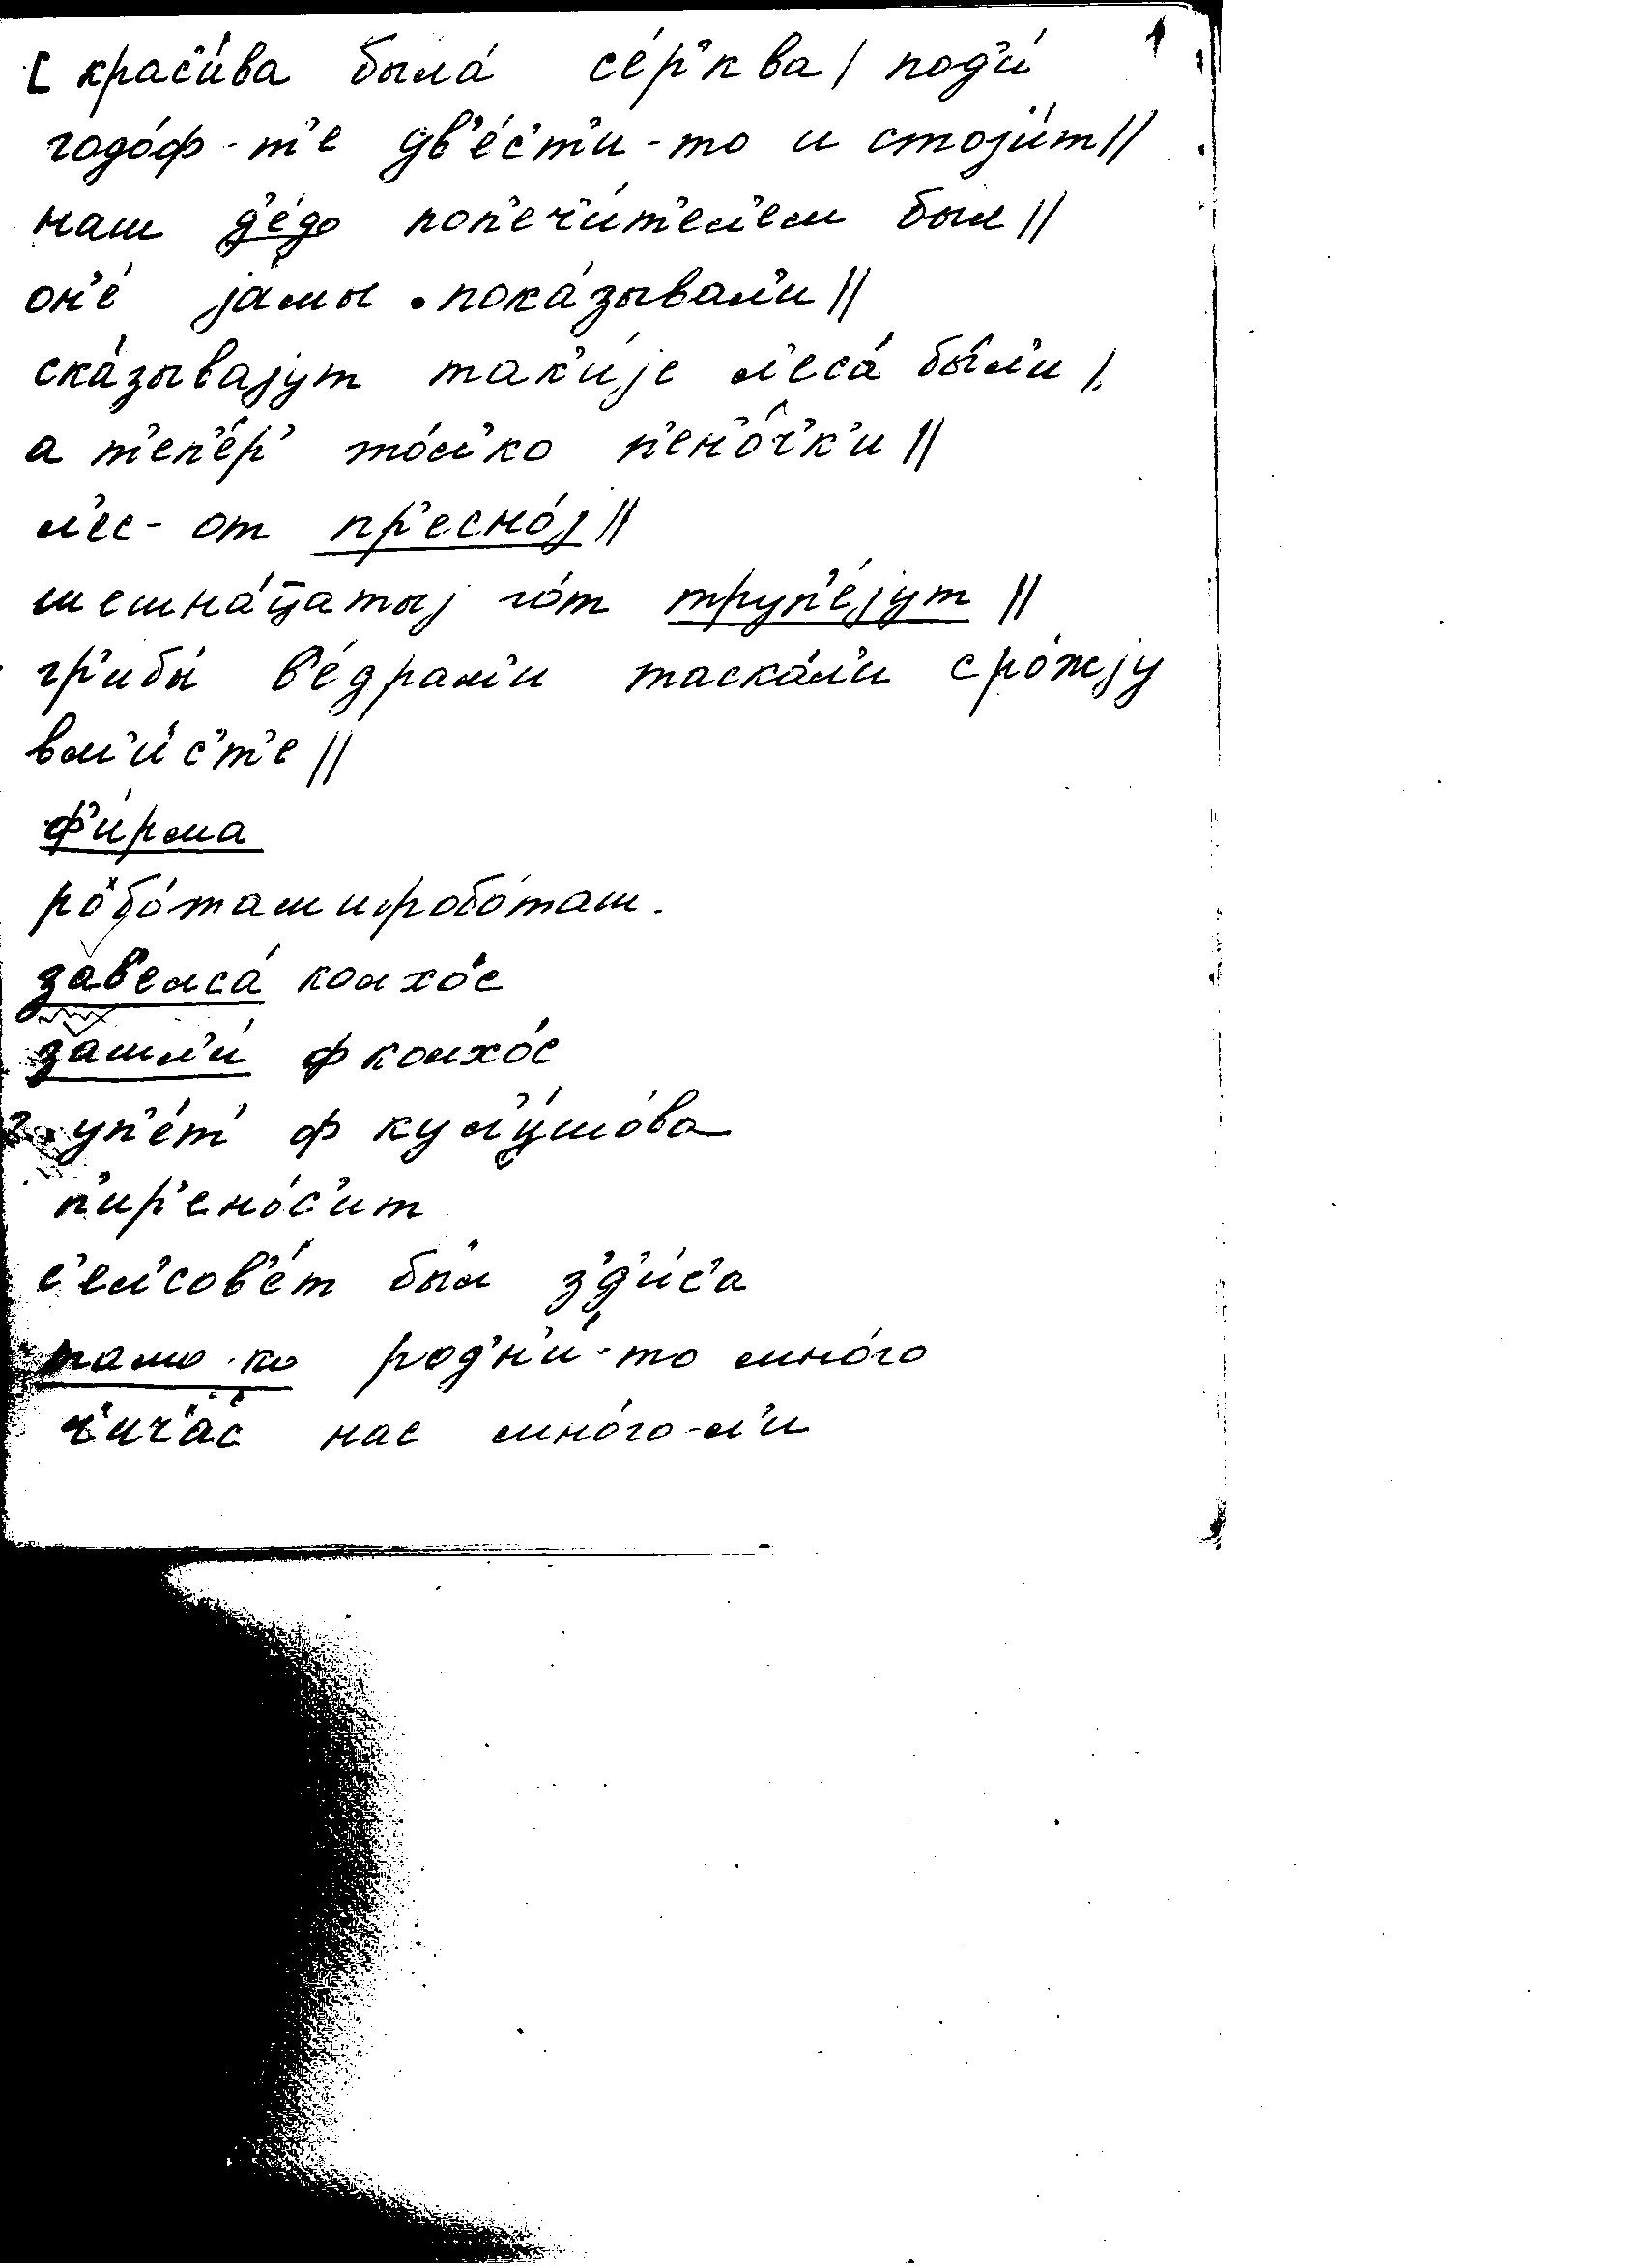 1
[ крас'и́ва была́ се́р'ква / под'и́
годо́ф-т'е дв'е́с'т'и-то и стоjи́т //
наш д'е́до поп'еч'и́т'ел'ем был //
он'е́ jа́мы пока́зывал'и //
ска́зываjут так'и́jе л'еса́ бы́л'и /
а т'еп'е́р' то́л'ко п'ен'о́ч'к'и //
л'ес-от пр'есно́j //
шешна́ц̅атыj го́т труп'е́jут //
гр'ибы́ в'е́драм'и таска́л'и с ро́жjу
вм'и́с'т'е //
ф'и́рма
робо́таш и робо́таш.
зав'елса́ колхо́с
зашл'и́ ф колхо́с
уп'е́т' ф кул'у́шова
п'ир'ено́с'ит
с'ел'сов'е́т бы́л з'д'и́с'а
тамо-ко род'н'и́-то мно́го
ч'ич'а́с нас мно́го-л'и